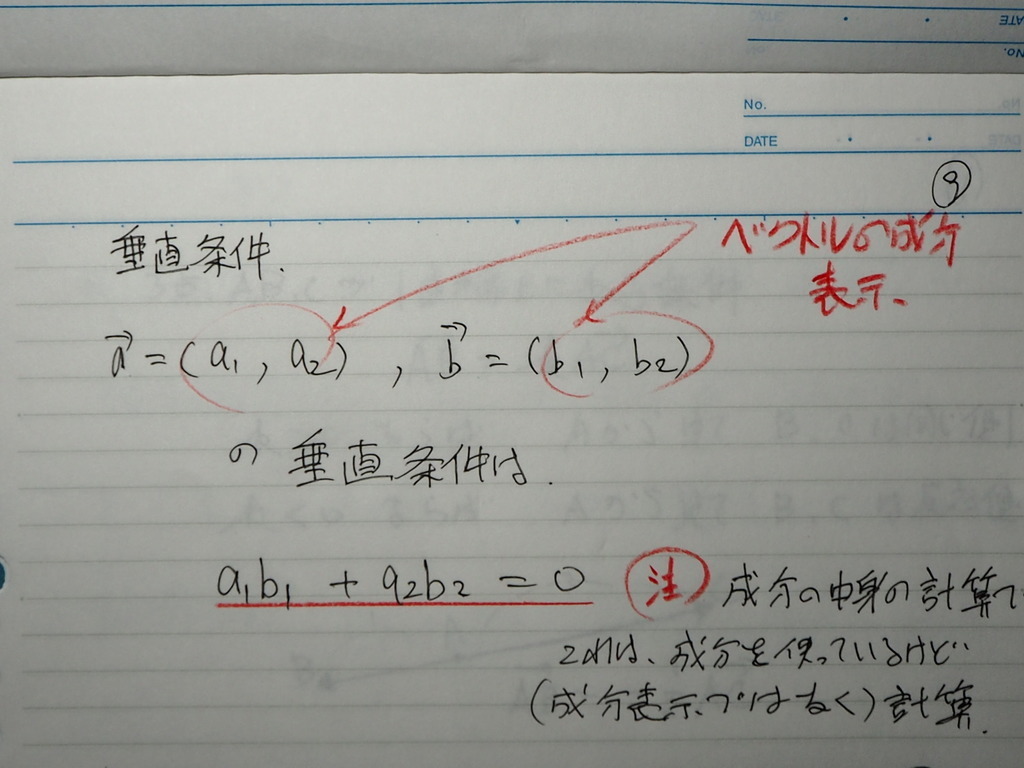 No.
DATE
⑨
垂直条件.
ベクトルの成分
表示、
a⃗ = (a₁, a₂) , b⃗ = (b₁, b₂)
の垂直条件は.
a₁b₁ + a₂b₂ = 0
注 成分の中身の計算で
これは、成分を使っているけど…
(成分表示ではなく)計算.